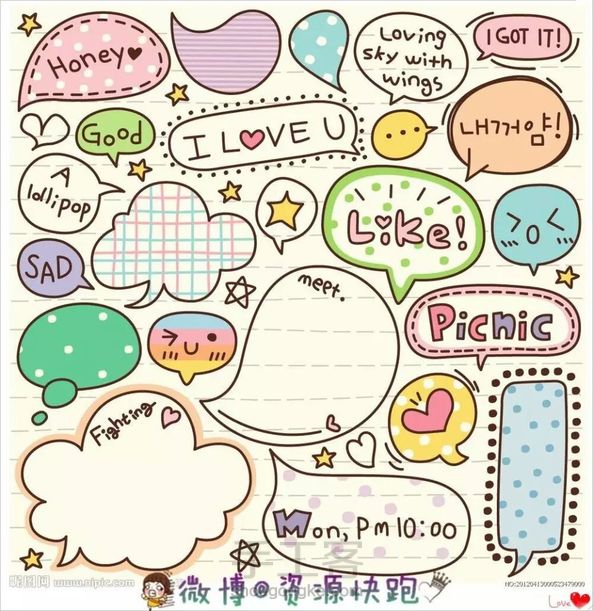 Honey
Loving
sky with
wings
I GOT IT!
Good
I LOVE U
내꺼얌!
A
lollipop
Like!
SAD
meet.
Picnic
Fighting
Mon, Pm 10:00
昵图网 www.nipic.com
微博@资源快跑
NO:20120413000523479000
Love